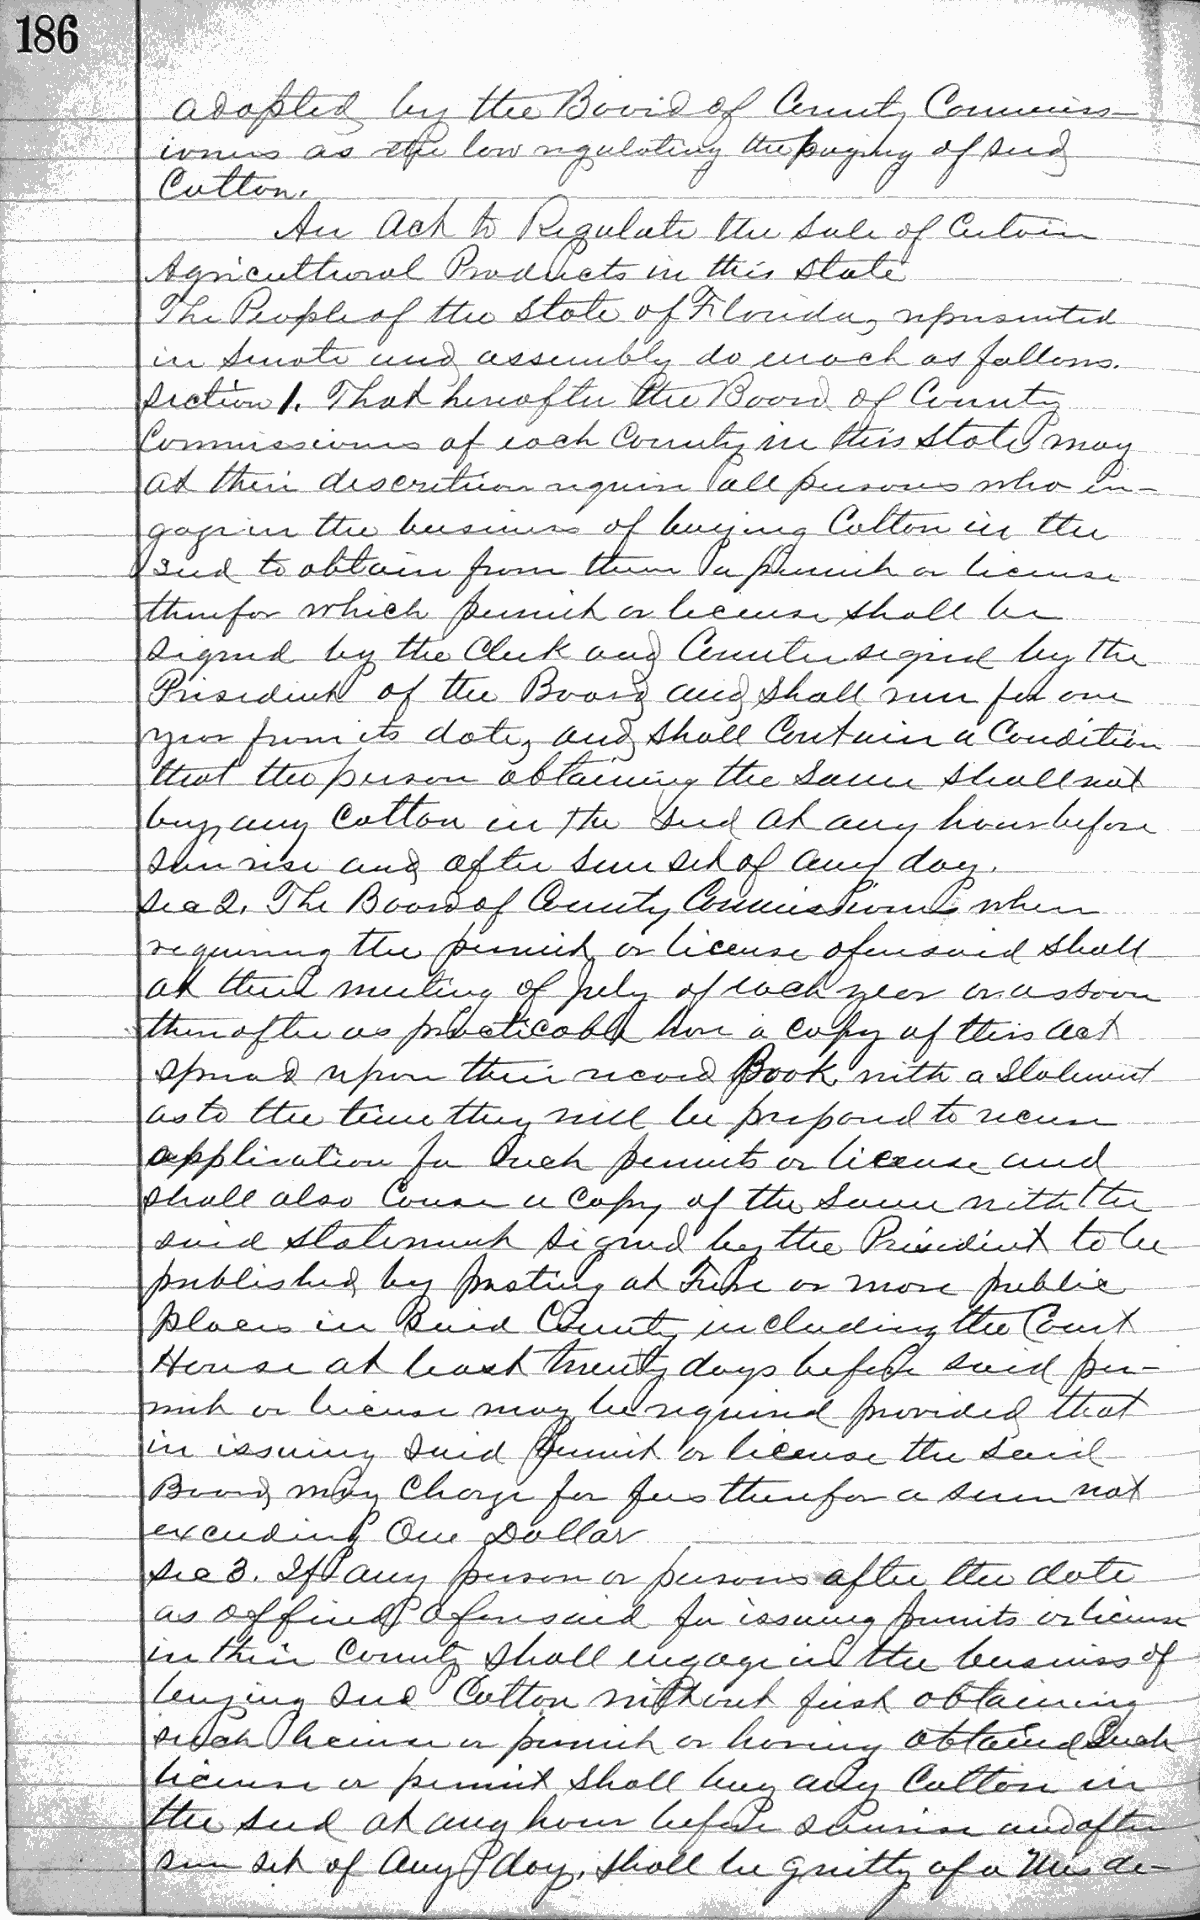 186
adopted by the Board of County Commiss-
ioners as the law regulating the buying of seed
Cotton.
An Act to Regulate the Sale of Certain
Agricultural Products in this State
The People of the State of Florida, represented
in Senate and assembly do enact as follows.
Section 1. That hereafter the Board of County
Commissioners of each County in this State may
at their discretion require all persons who en-
gage in the business of buying Cotton in the
seed to obtain from them a permit or license
therefor which permit or license shall be
signed by the Clerk and Countersigned by the
President of the Board and shall run for one
year from its date, and shall Contain a Condition
that the person obtaining the same shall not
buy any Cotton in the seed at any hour before
sun rise and after sun set of any day.
Sec 2. The Board of County Commissioners when
requiring the permit or license aforesaid shall
at their meeting of July of each year or as soon
thereafter as practicable have a copy of this act
spread upon their record Book with a Statement
as to the time they will be prepared to receive
application for such permits or license and
shall also Cause a Copy of the same with the
said statement signed by the President to be
published by posting at Five or more public
places in said County including the Court
House at least twenty days before said per-
mit or license may be required provided that
in issuing said permit or license the said
Board may Charge for fees therefor a sum not
exceeding One Dollar
Sec 3. If any person or persons after the date
as affixed aforesaid for issuing permits or license
in their County shall engage in the business of
buying seed Cotton without first obtaining
such license or permit or having obtained such
license or permit shall buy any Cotton in
the seed at any hour before sunrise and after
sun set of any day, shall be guilty of a Misde-